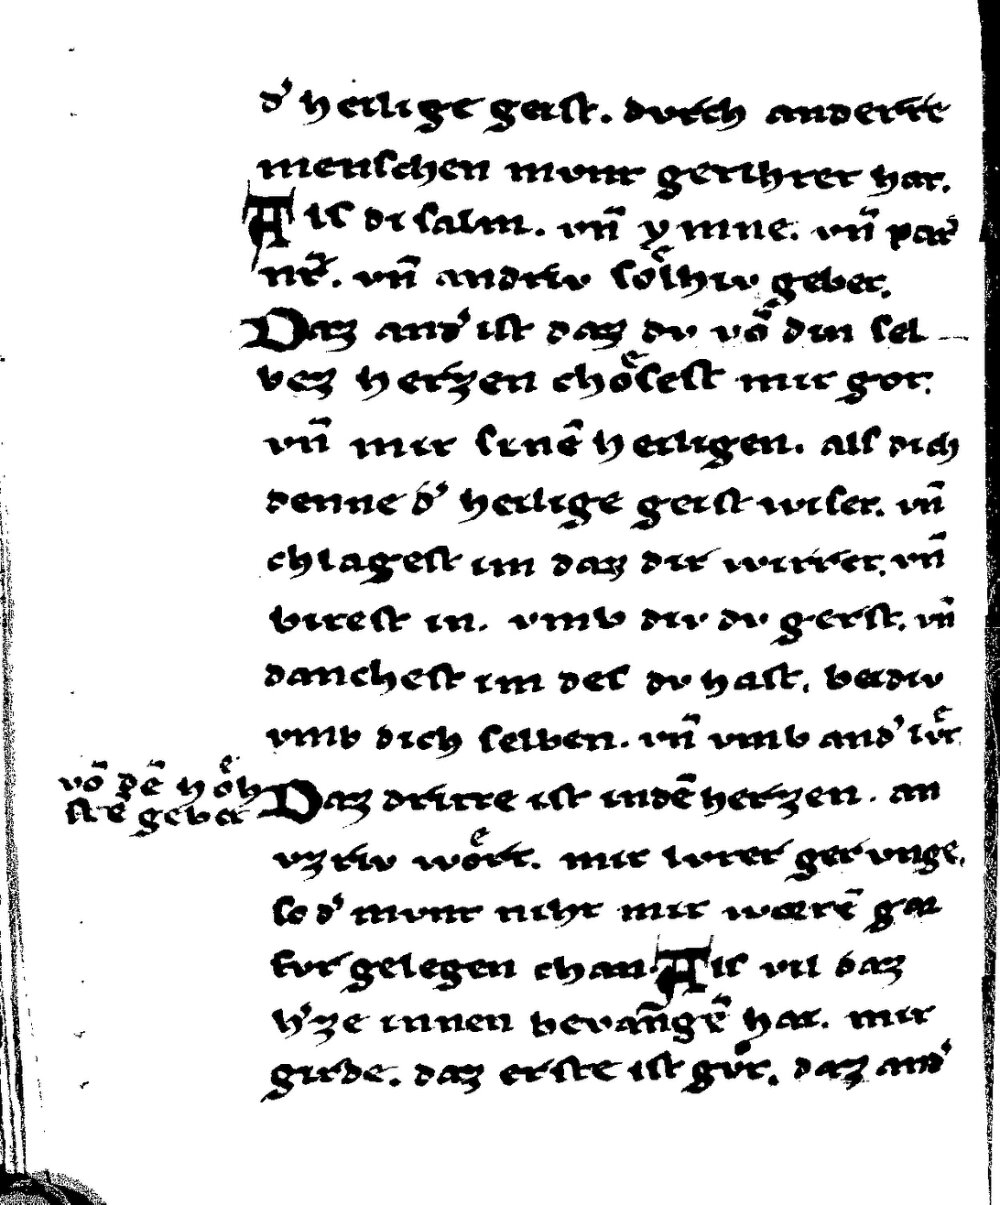 d᾽ heilige geist. dvrch anderre
menschen mvnt getihtet hat.
Als di salm. vn̄ ymne. vn̄ pat᾽
nr̄. vn̄ andriv soͤlhiv gebet.
Daz and᾽ ist daz dv vō din sel
bez herzen choͤsest mit got.
vn̄ mit sinē heiligen. als dich
denne d᾽ heilige geist wiset. vn̄
chlagest im daz dir wirret. vn̄
bitest in. vmb div dv gerst. vn̄
danchest im des dv hast. beidiv
vmb dich selben. vn̄ vmb and᾽ lvͤt
vō dē hoͤh
stē gebet
Daz dritte ist indē herzen. an
vzriv woͤrt. mit ivrer gervnge.
so d᾽ mvnt niht mit wortē gar
fvr gelegen chan. Als vil daz
h᾽ze innen bevangē hat. mit
girde. daz erste ist gvͦt. daz and᾽